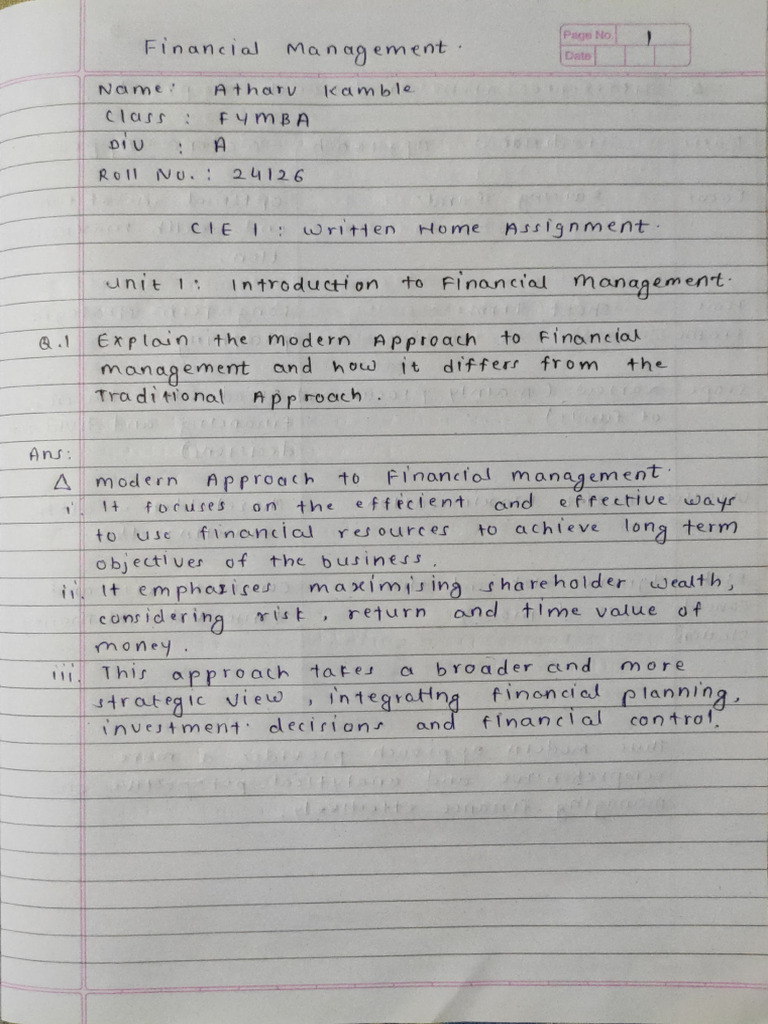 Financial Management.
Page No. 1
Date
Name: Atharv Kamble
Class : FYMBA
Div : A
Roll No. : 24126
CIE 1 : Written Home Assignment.
Unit 1: Introduction to Financial Management.
Q.1 Explain the modern Approach to Financial
management and how it differs from the
Traditional Approach.
Ans:
Δ modern Approach to Financial management.
i. It focuses on the efficient and effective ways
to use financial resources to achieve long term
objectives of the business.
ii. It emphasises maximising shareholder wealth,
considering risk, return and time value of
money.
iii. This approach takes a broader and more
strategic view, integrating financial planning,
investment decisions and financial control.